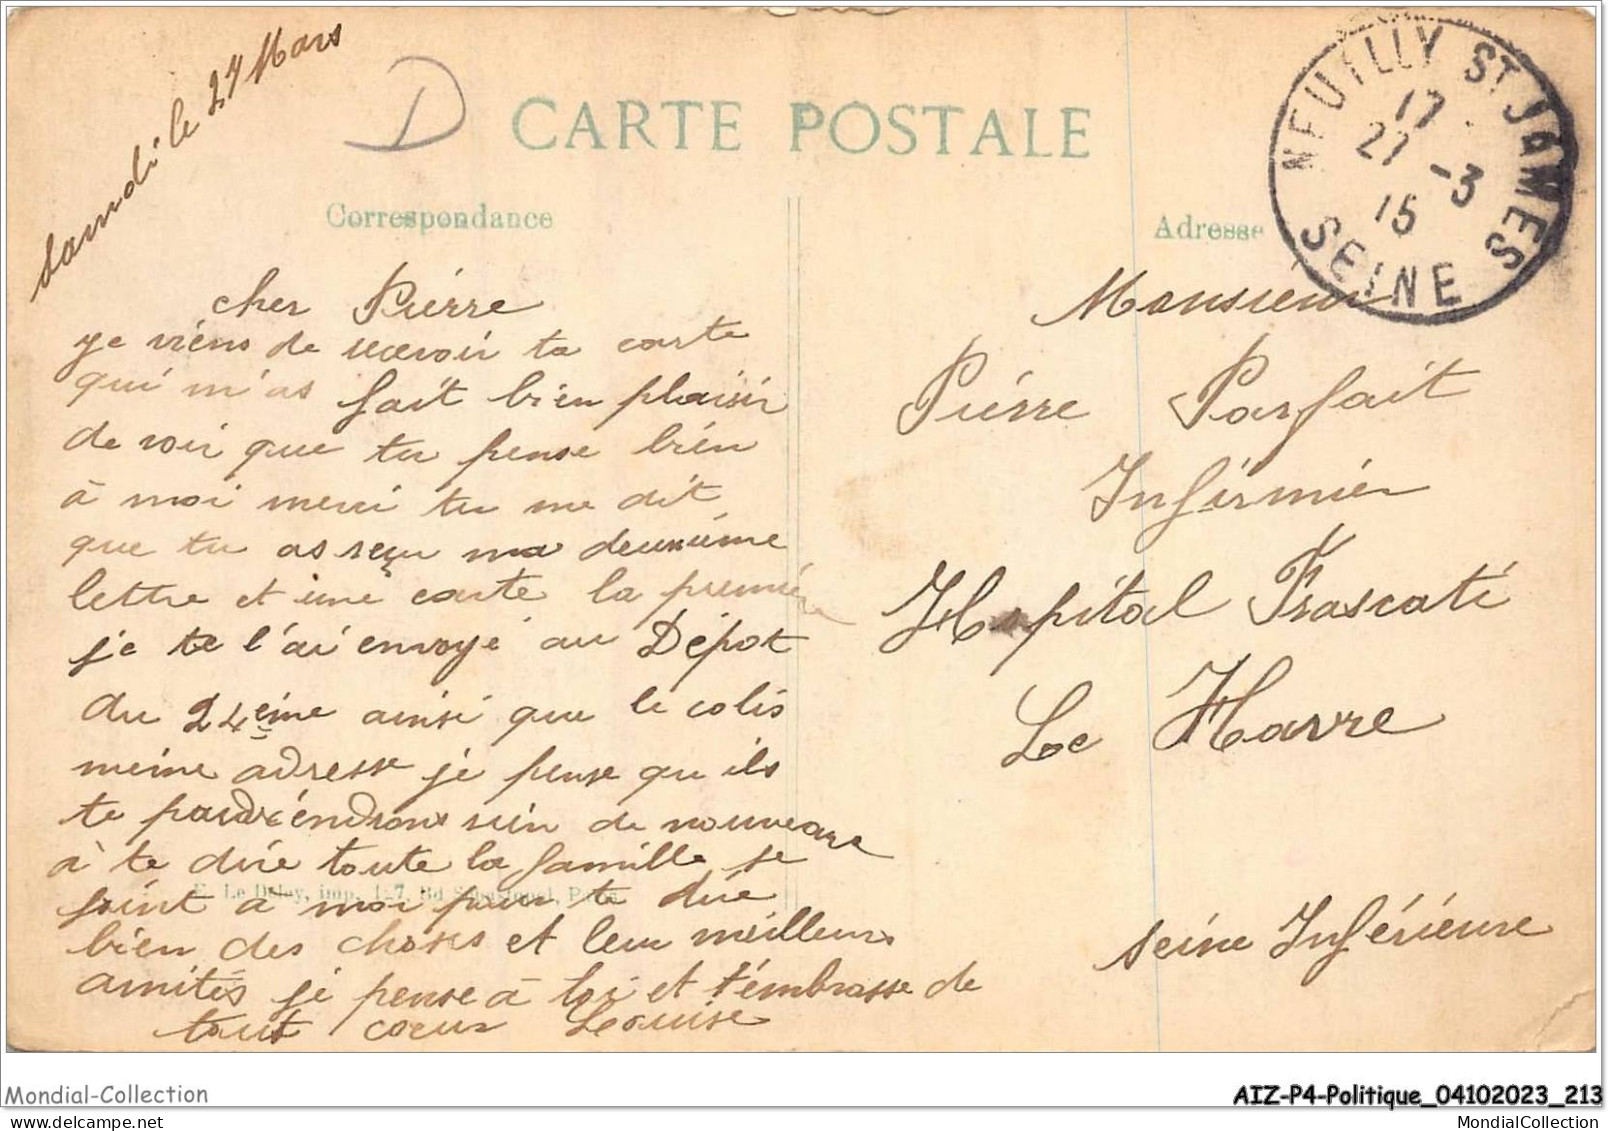 samdi le 27 Mars
D
CARTE POSTALE
Correspondance
Adresse
NEUILLY ST JAMES
17
27 -3
15
SEINE
cher Pierre
je viens de recevoir ta carte
qui m'as fait bien plaisir
de voir que tu pense bien
à moi merci tu me dit
que tu as reçu ma deuxième
lettre et une carte la première
je te l'ai envoyé au Dépot
du 24eme ainsi que le colis
meme adresse je pense qu ils
te parviendrons rien de nouveau
à te dire toute la famille se
joint a moi pour te dire
E. Le Deley, imp., 127, Bd Sébastopol, Paris
bien des choses et leur meilleurs
amités je pense à toi et t'embrasse de
tout coeur Louise
Monsieur
Pierre Parfait
Infirmier
Hopital Frascati
Le Havre
seine Inférieure
Mondial-Collection
AIZ-P4-Politique_04102023_213
MondialCollection